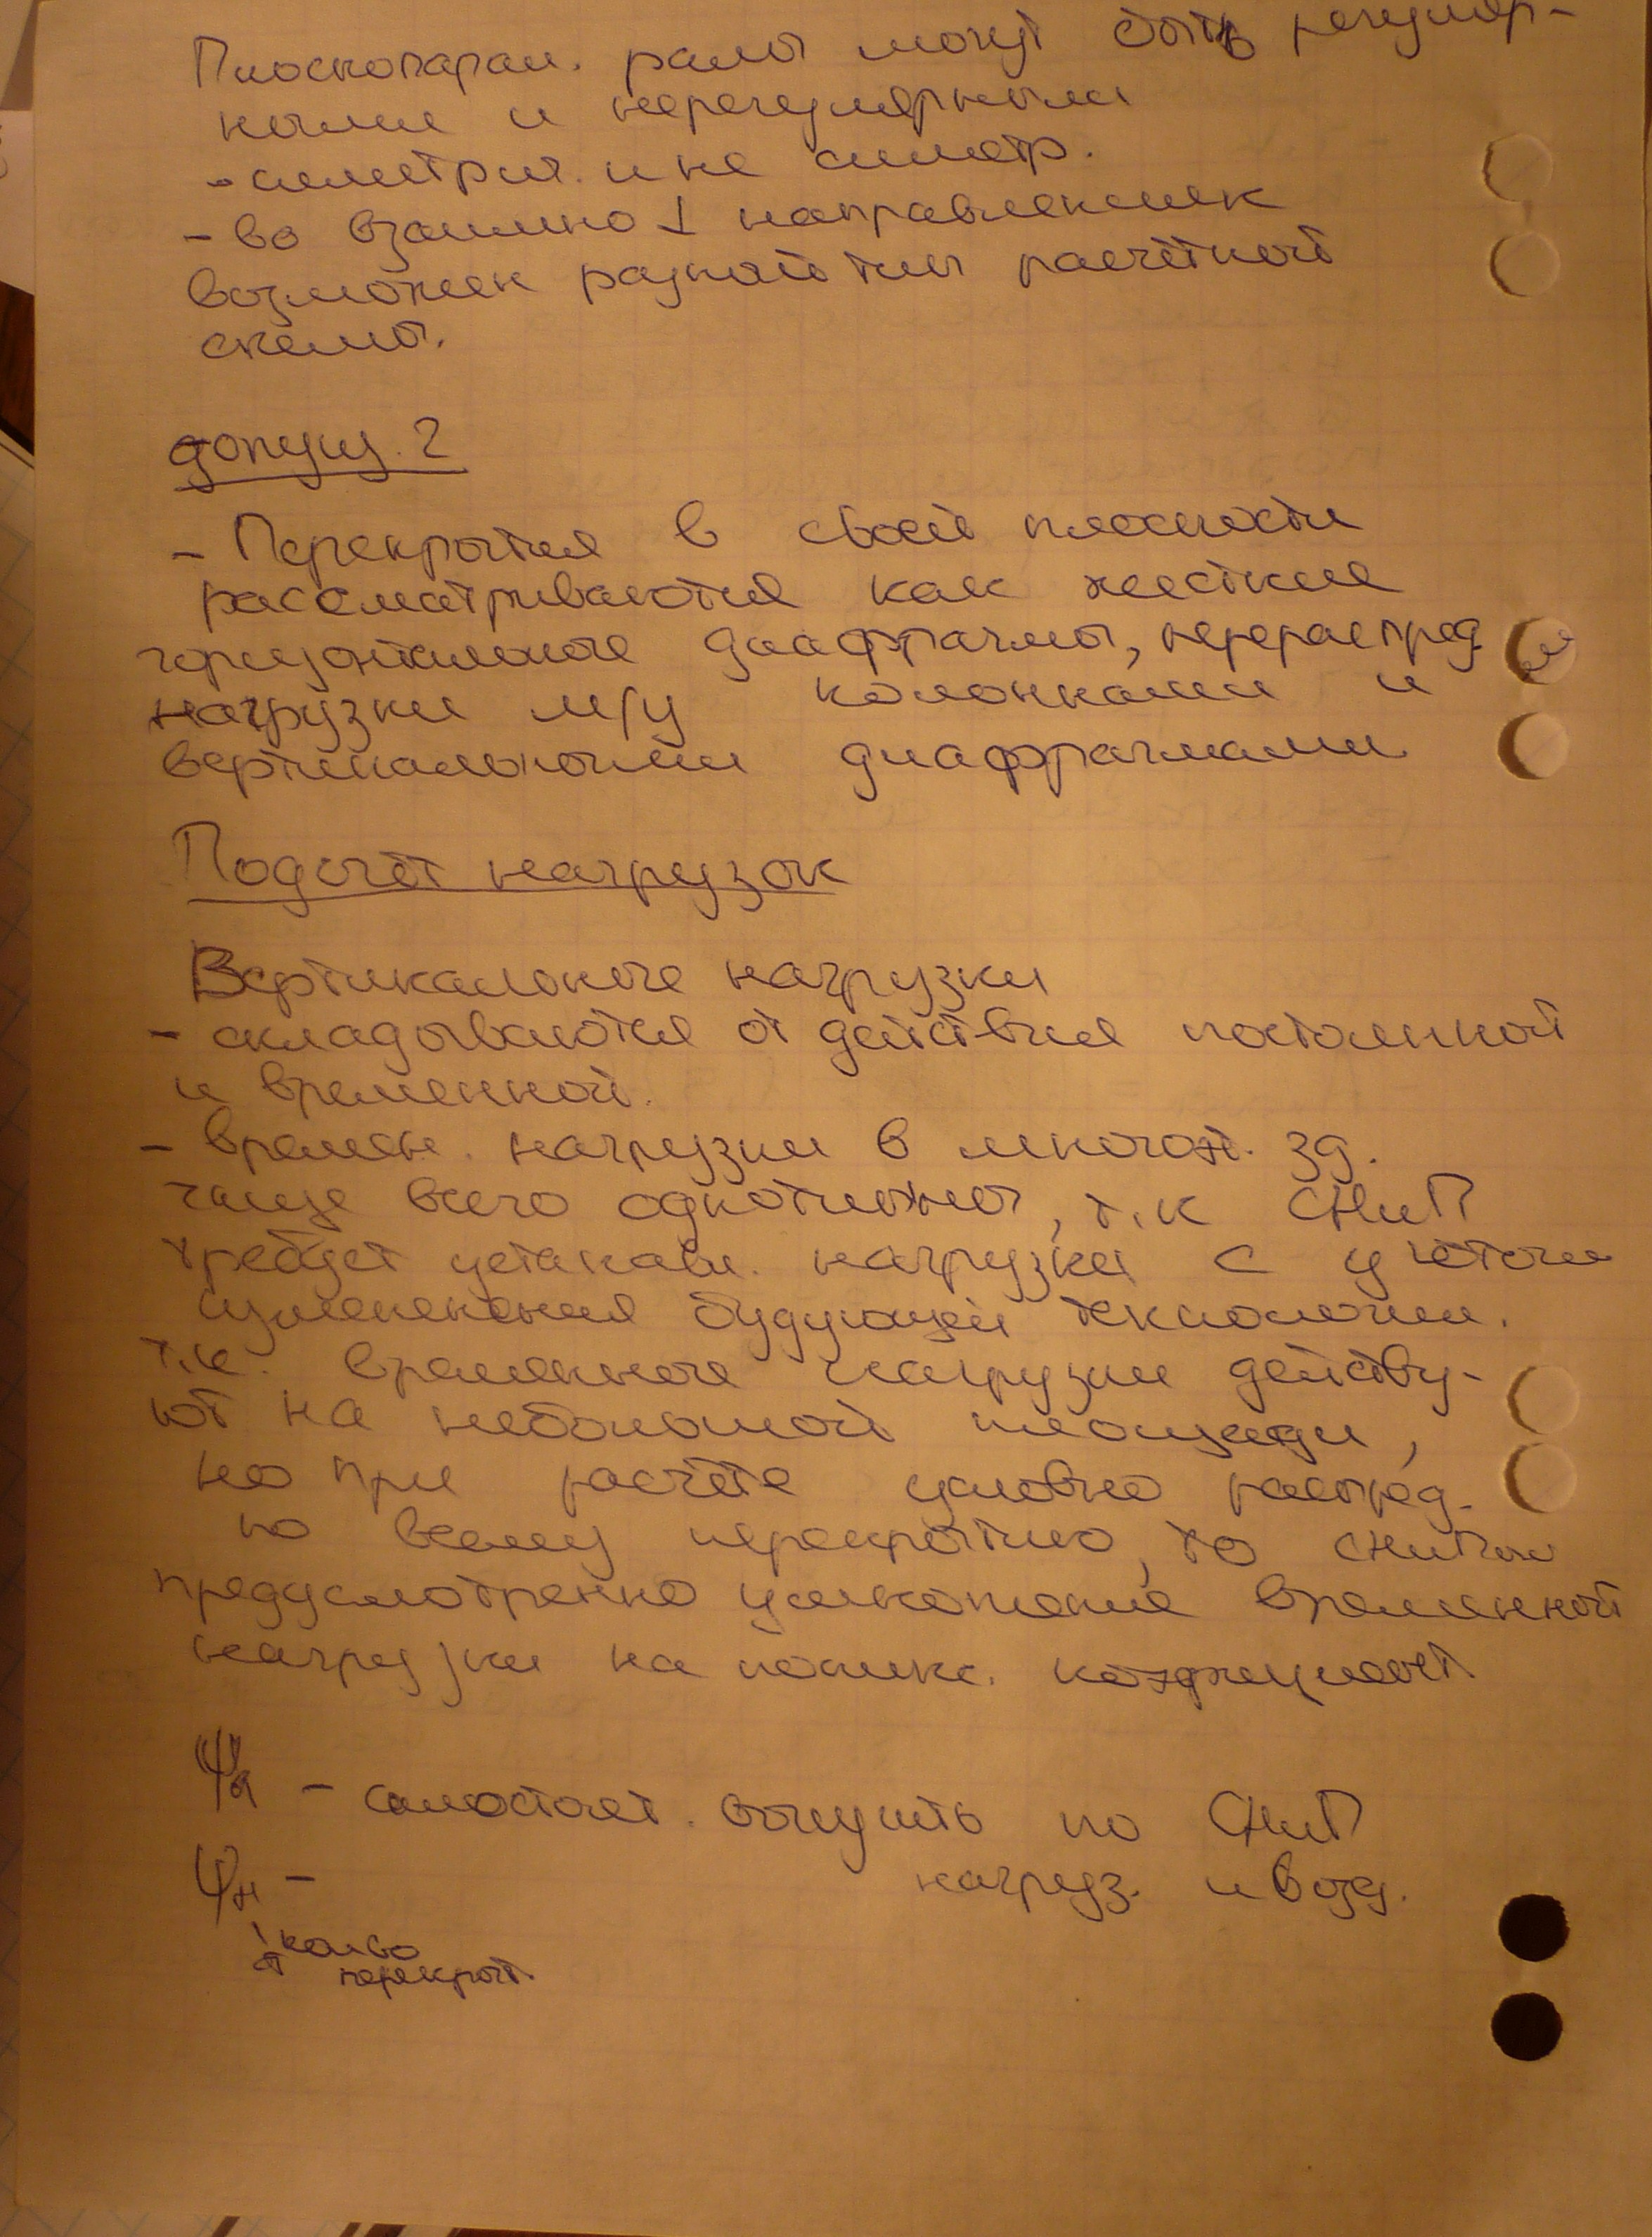 Плоскопарал. рамы могут быть регуляр-
ными и нерегулярными
- симетрич. и не симетр.
- во взаимно ⊥ направлениях
возможен разный тип расчётной
схемы.
допущ. 2
- Перекрытия в своей плоскости
рассматриваются как жесткие
горизонтальные диафрагмы, перераспред.
нагрузки м/у колоннами и
вертикальными диафрагмами
Подсчёт нагрузок
Вертикальные нагрузки
- складываются от действия постоянной
и временной.
- времен. нагрузки в многоэт. зд.
чаще всего однотипны, т.к СНиП
требует устанавл. нагрузки с учётом
изменения будующей технологии.
т.к. временные нагрузки действу-
ют на небольшой площади,
но при расчёте условно распред.
по всему перекрытию, то СНиПом
предусмотренно уменьшение временной
нагрузки на пониж. коэффициент.
- самостоят. выучить по СНиП
Ψн - нагруз. и возд.
кол-во
перекрыт.